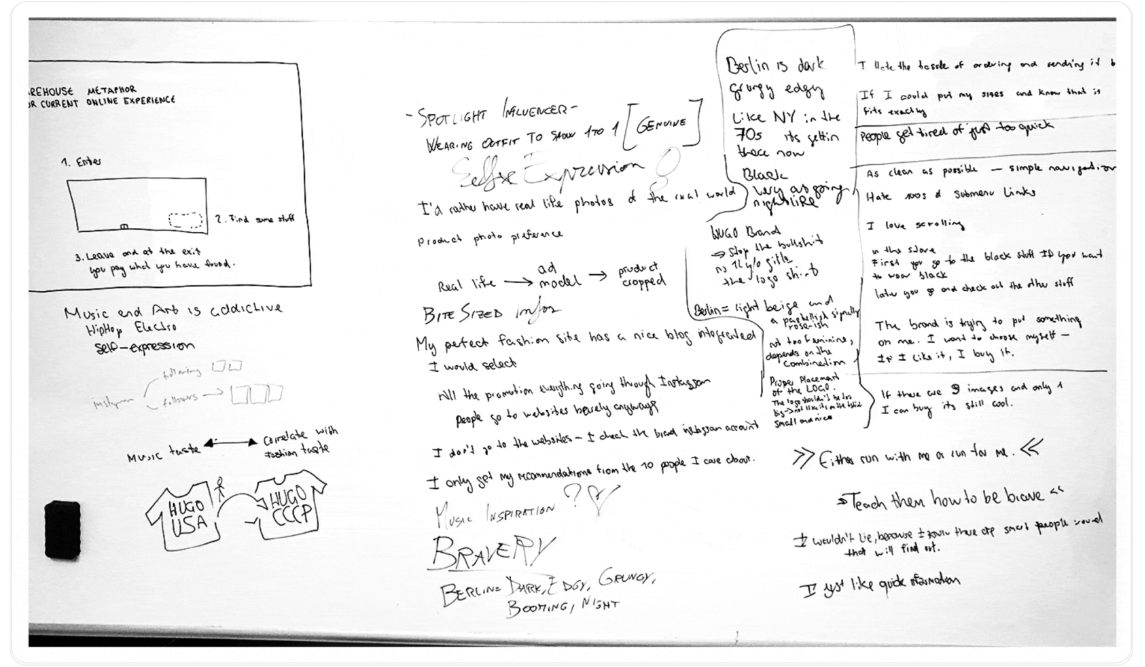 REHOUSE METAPHOR
R CURRENT ONLINE EXPERIENCE
1. Enter
2. Find some stuff
3. Leave and at the exit
you pay what you have found.
Music and Art is addictive
HipHop Electro
self-expression
following
followers
Music taste
Correlate with
fashion taste
HUGO
USA
HUGO
CCCP
- SPOTLIGHT INFLUENCER -
WEARING OUTFIT TO SHOW 1 TO 1 [GENUINE]
Selfe Expression
I'd rather have real life photos of the real world
Product photo preference
Real life → ad model → product cropped
BITE SIZED infos
My perfect fashion site has a nice blog integrated
I would select
All the promotion everything going through Instagram
people go to websites barely anyways
I don't go to the websites – I check the brand instagram account
I only get my recommendations from the 10 people I care about.
Music Inspiration ?
BRAVERY
BERLIN = DARK, EDGY, GRUNGY,
BOOMING, NIGHT
Berlin is dark
grungy edgy
Like NY in the
70s its gettin
there now
Black
nightlife
HUGO Brand
⇒ Stop the bullshit
the logo shirt
Berlin = light beige and
not too feminine,
depends on the
combination
Proper Placement
of the LOGO.
The logo shouldn't be too
small and nice
I Hate the hassle of ordering and sending it b
If I could put my sizes and know that it
fits exactly
People get tired of just too quick
As clean as possible – simple navigation
Hate 100s of Submenu Links
I love scrolling
in the store
First you go to the black stuff if you want
to wear black
later you go and check out the other stuff
The brand is trying to put something
on me. I want to choose myself –
If I like it, I buy it.
If there are 9 images and only 1
I can buy its still cool.
>> Either run with me or run for me. <<
Teach them how to be brave
I wouldn't lie, because I know there are smart people around
that will find out.
I just like quick information